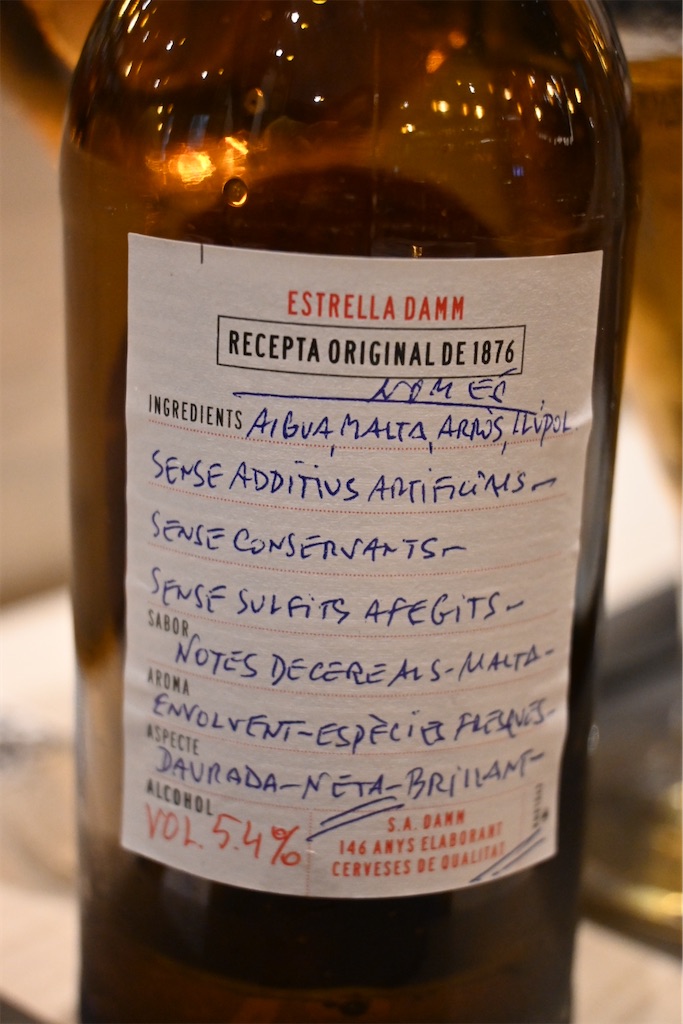 ESTRELLA DAMM
RECEPTA ORIGINAL DE 1876
NOMÉS
INGREDIENTS AIGUA, MALTA, ARRÒS, LLÚPOL.
SENSE ADDITIUS ARTIFICIALS-
SENSE CONSERVANTS-
SENSE SULFITS AFEGITS-
SABOR
NOTES DE CEREALS-MALTA-
AROMA
ENVOLVENT-ESPÈCIES FRESQUES-
ASPECTE
DAURADA-NETA-BRILLANT-
ALCOHOL
VOL. 5.4%
S.A. DAMM
146 ANYS ELABORANT
CERVESES DE QUALITAT